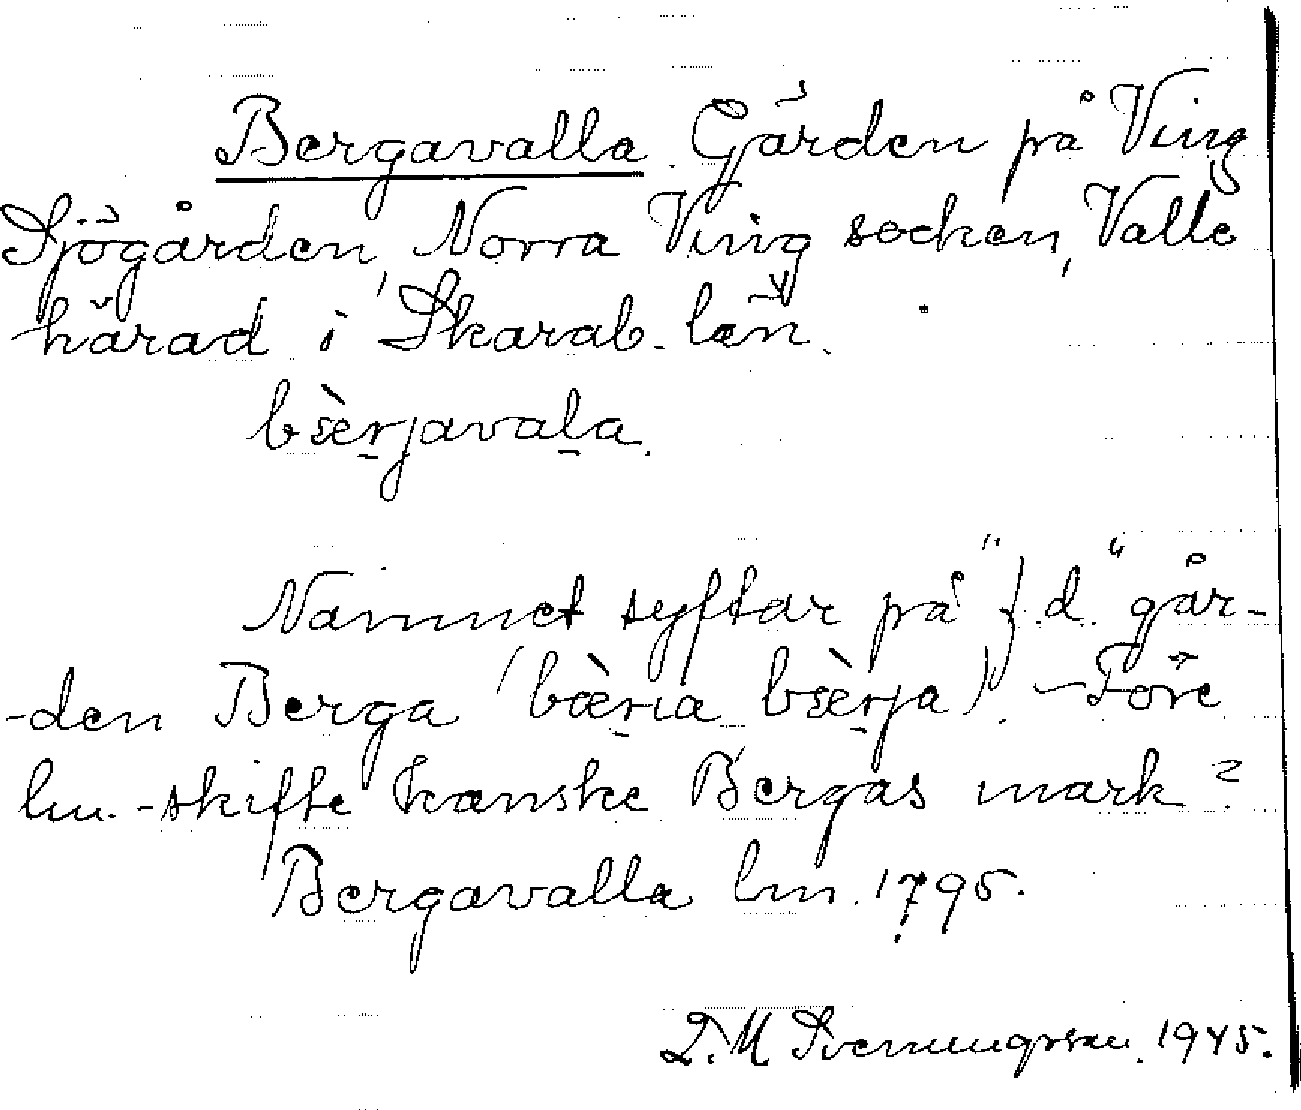 Bergavalla. Gården på Ving
Sjögården, Norra Ving socken, Valle
härad i Skarab. län.
bæ̀rjavala.
Namnet syftar på "f.d." går-
-den Berga (bæ̀ria bæ̀rja). - Före
lm.-skifte kanske Bergas mark?
Bergavalla lm. 1795.
D. M Svenungsson. 1945.